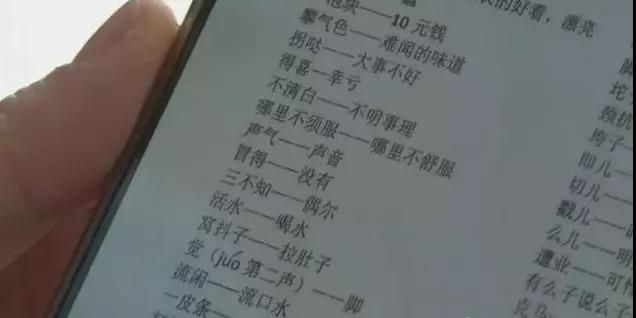 的好看，漂亮
块——10元钱
气色——难闻的味道
拐哒——大事不好
得喜—幸亏
不清白——不明事理
哪里不须服——哪里不舒服
声气——声音
冒得——没有
三不知——偶尔
活水——喝水
窝抖子——拉肚子
觉（juó第二声）——脚
流闲——流口水
一皮条——
脚
坨
颈
垮子—
即儿—
切儿—
戳儿—
么儿——明
遭业——可怜
有么子说么子